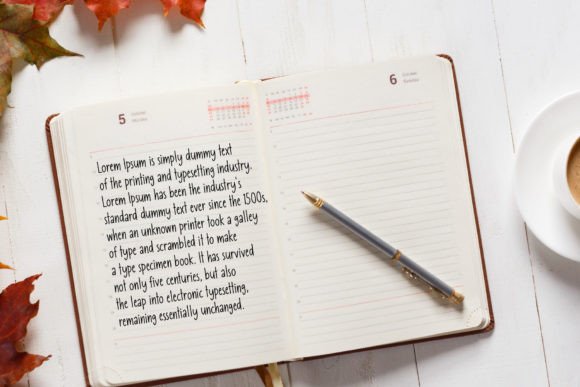 5
Lorem Ipsum is simply dummy text
of the printing and typesetting industry.
Lorem Ipsum has been the industry's
standard dummy text ever since the 1500s,
when an unknown printer took a galley
of type and scrambled it to make
a type specimen book. It has survived
not only five centuries, but also
the leap into electronic typesetting,
remaining essentially unchanged.
6